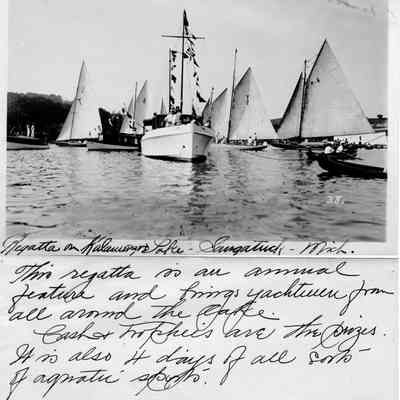 38.
Regatta on Kalamazoo Lake - Saugatuck - Mich.
This regatta is an annual
feature and brings yachtmen from
all around the Lake
Cash & Trophies are the prizes.
It is also 4 days of all sorts
of aquatic sports.